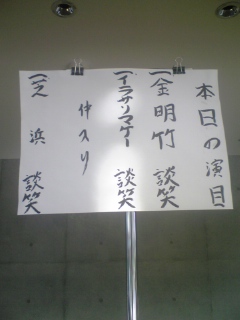 本日の演目
一金明竹 談笑
一イラサリマケー 談笑
仲入り
一芝浜 談笑